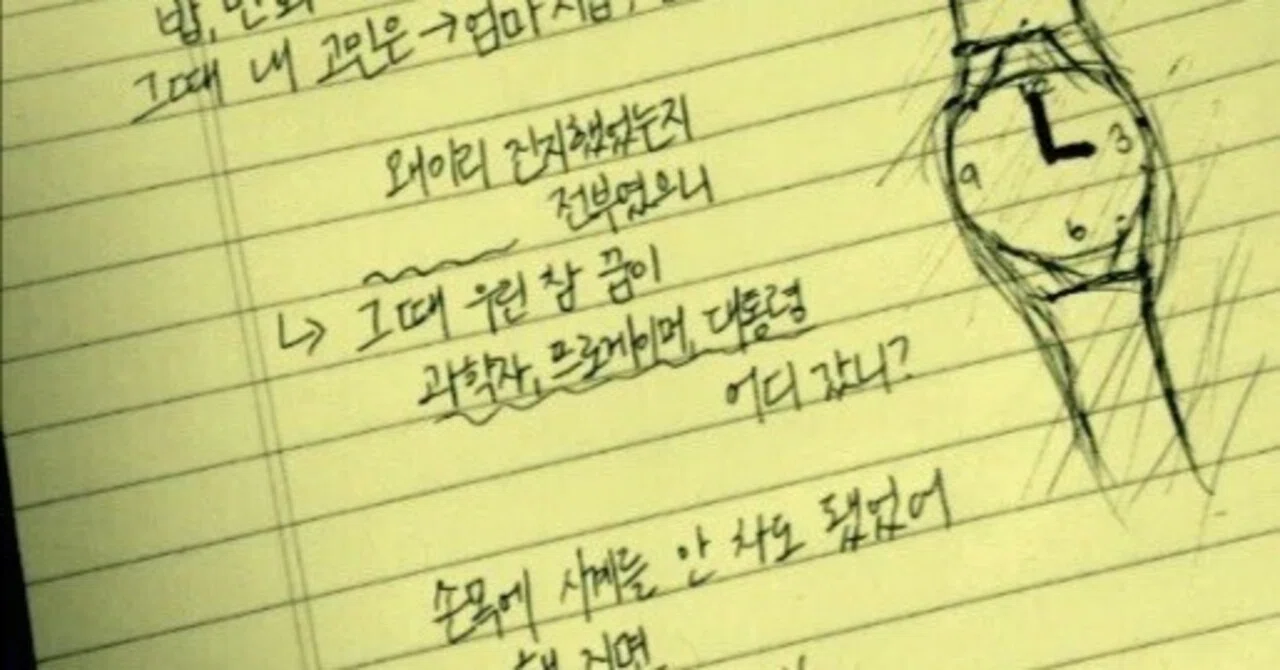 밥, 만화
그때 내 고민은 → 엄마
왜이리 진지했었는지
전부였으니
↳ 그때 우린 참 꿈이
과학자, 프로게이머, 대통령
어디 갔니?
손목에 시계를 안 차도 됐었어
해 지면
12
3
6
9